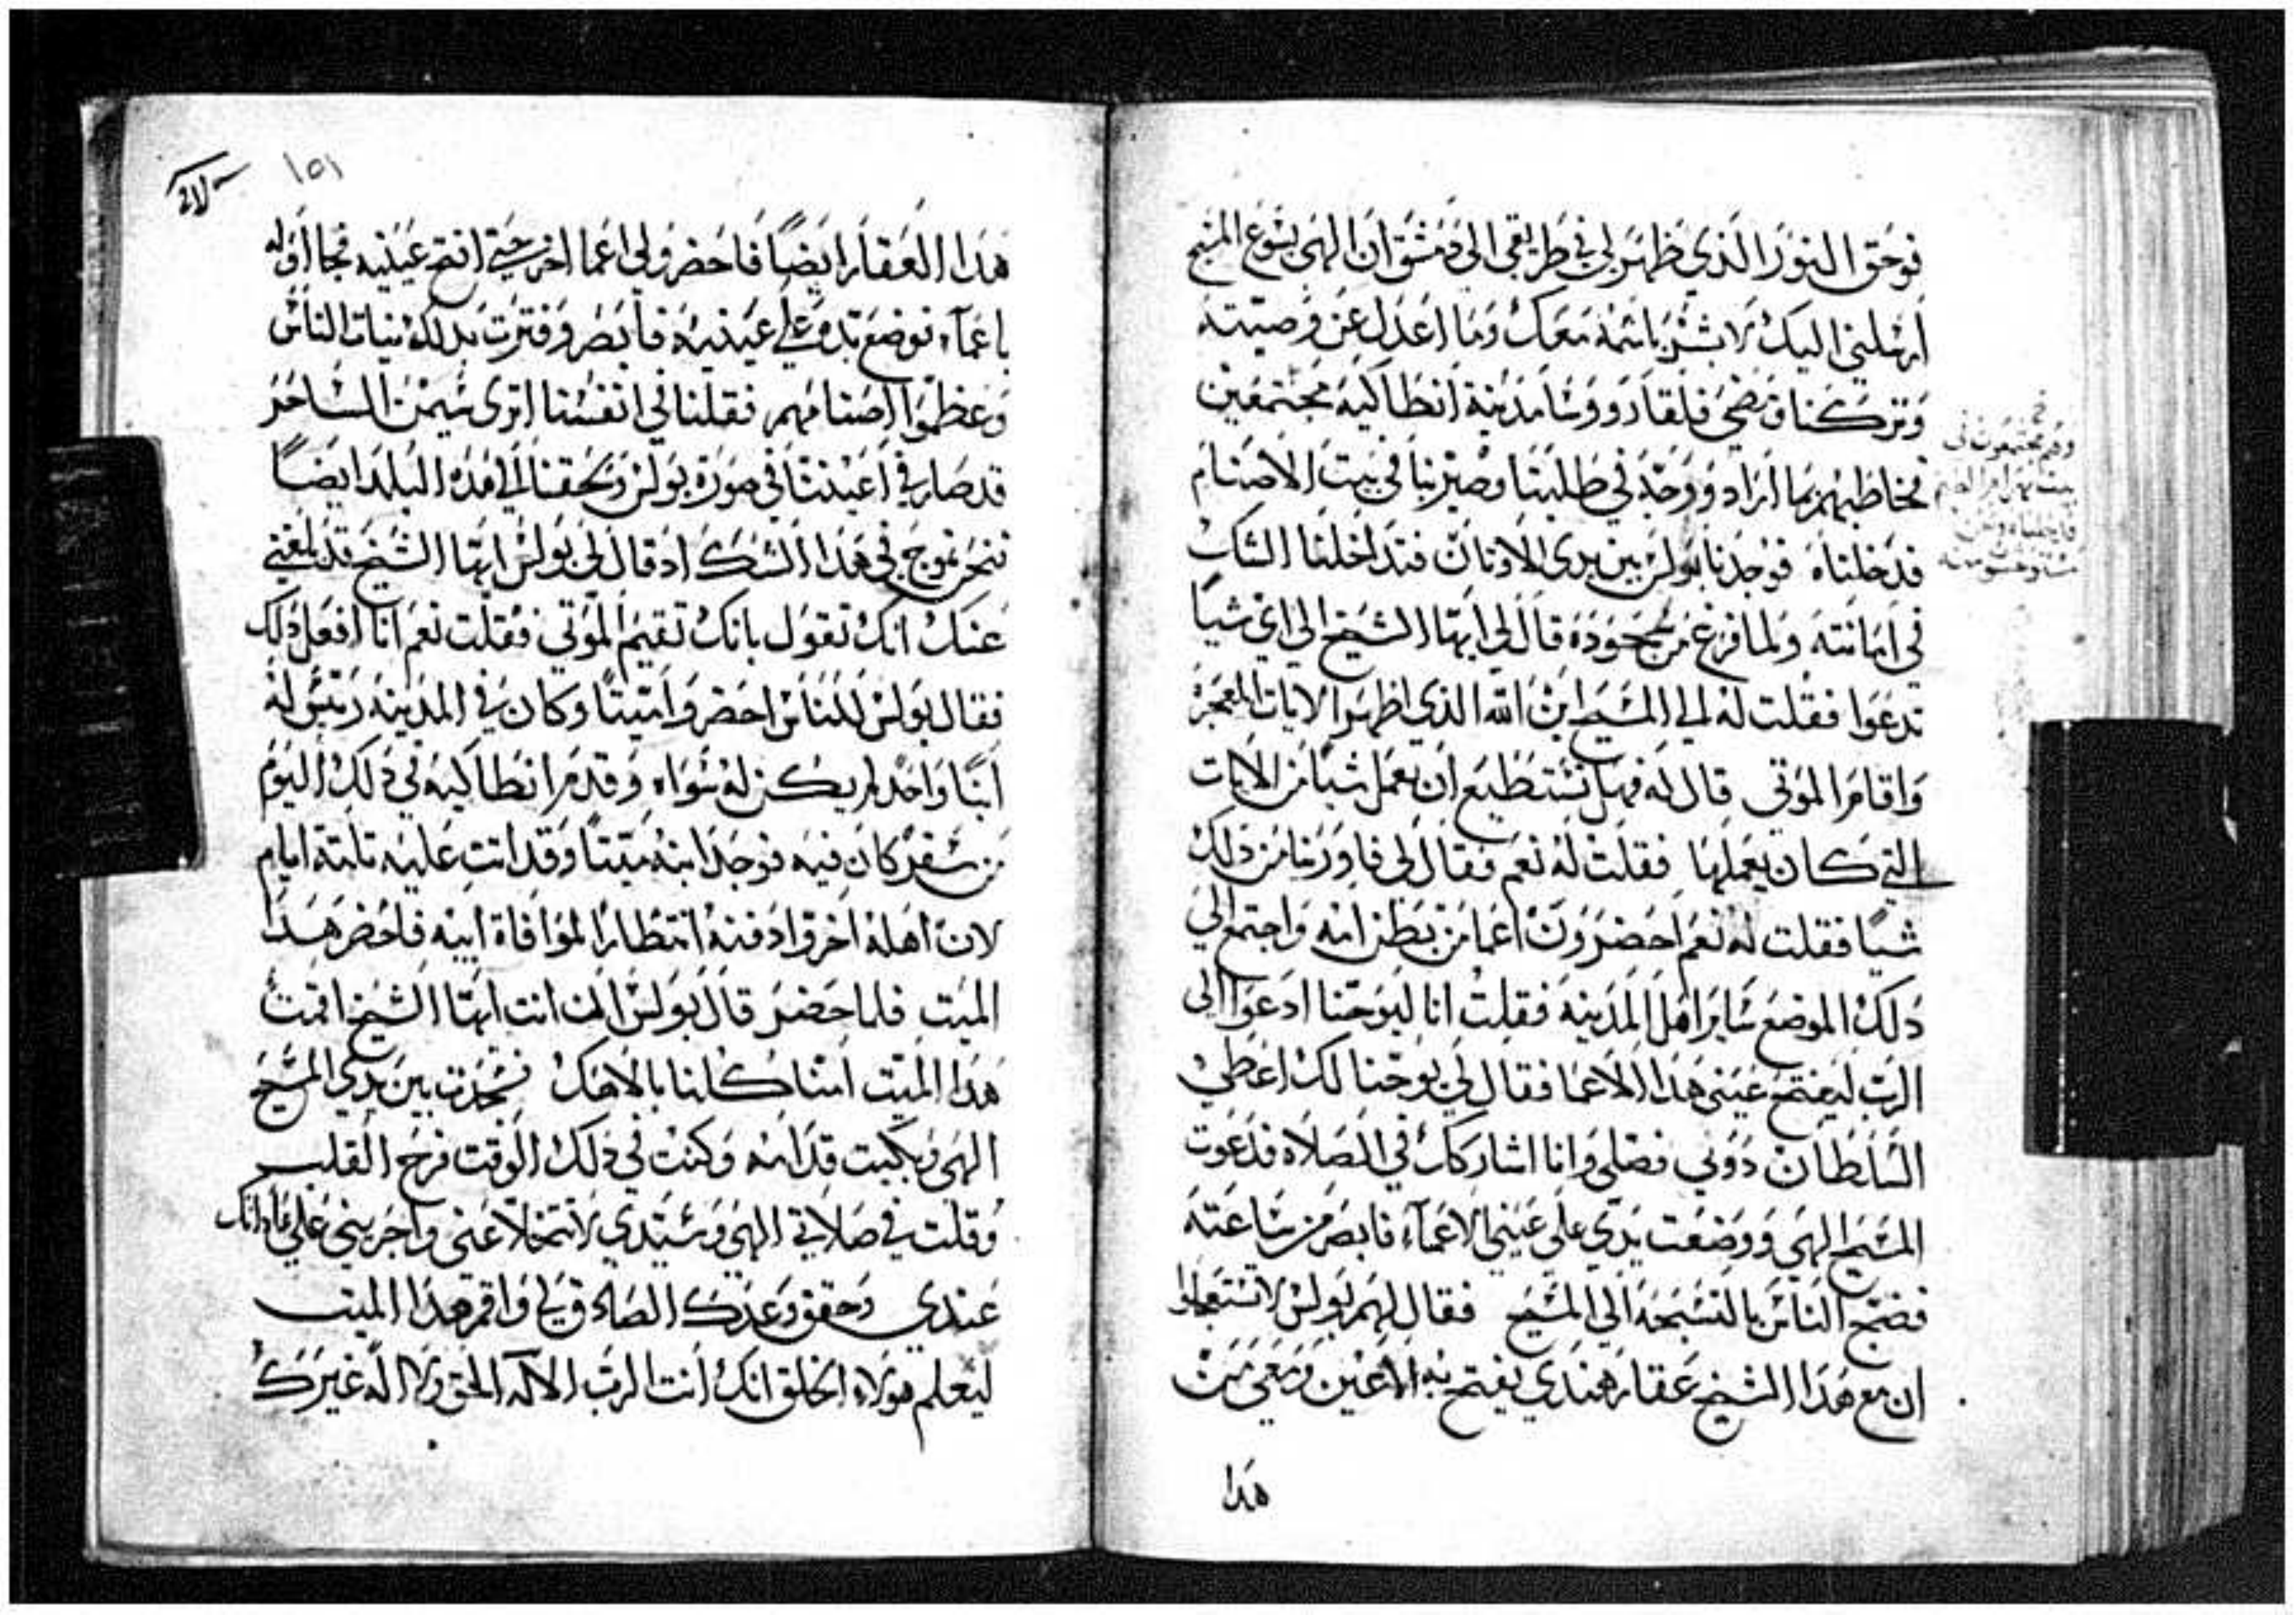 فوحق النور الذي ظهر لي في طريقي الى دمشق ان الهي يسوع المسيح
ارسلني اليك لابشر باسمه معك وما اعدل عن وصيته
وتركنا ومضي فلقا روسا مدينة انطاكيه مجتمعين
فخاطبهم بما اراد ووجه في طلبنا وصيرنا في بيت الاصنام
فدخلناه فوجدنا بولس بين يدى الاوتان فتداخلنا الشك
في امانته ولما فرغ من جحوده قال لي ايها الشيخ الي اي شيا
تدعوا فقلت له الي المسيح ابن الله الذي اظهر الايات المعجزه
واقام الموتي قال له فهل تستطيع ان تعمل شيا من الايات
التي كان يعملها فقلت له نعم فقال لي فاورنا من ذلك
شيا فقلت له نعم احضرون اعما من بطن امه واجتمع الي
دلك الموضع ساير اهل المدينه فقلت انا ليوحنا ادعوا الى
الرب ليفتح عيني هذا الاعما فقال لي يوحنا لك اعطي
السلطان دوني فصلي وانا اشاركك في الصلاه فدعوت
المسيح الهي ووضعت يدي علي عيني الاعماء فابصر من ساعته
فضج الناس بالتسبحه الي المسيح فقال لهم بولس لا تستعجلوا
ان مع هذا الشيخ عقار هندي يفتح به الاعين ومعي من
هدا
وهم مجتمعون في
١٥١
هدا العقار ايضا فاحضرولي اعما اخر حتي افتح عينيه فجااوله
باعماء فوضع يده علي عينيه فابصر وفترت بدلك نيات الناس
وعظموا اصنامهم فقلنا في انفسنا اترى سيمن الساحر
قد صار في اعيننا في صورة بولس ولحقنا الي هذه البلد ايضا
فنحن نموج في هذا الشك اد قال لي بولس ايها الشيخ قد بلغني
عنك انك تقول بانك تقيم الموتي فقلت نعم انا افعل ذلك
فقال بولس للناس احضروا ميتا وكان في المدينه رئيس له
ابنا واحد لم يكن له سواه وقدم انطاكيه في ذلك اليوم
من سفر كان فيه فوجد ابنه ميتا وقد اتت عليه تلتة ايام
لان اهله اخروا دفنه انتظارا لموافاة ابيه فاحضر هدا
الميت فلما حضر قال بولس ان انت ايها الشيخ اقمت
هدا الميت امنا كلنا بالاهك فسجدت بين يدي المسيح
الهي وبكيت قدامه وكنت في ذلك الوقت فرح القلب
وقلت في صلاتي الهي وسيدي لا تتخلا عني واجريني علي عادتك
عندي وحقق وعدك الصادق لي واقم هدا الميت
ليعلم هولاء الخلق انك انت الرب الاله الحق ولا اله غيرك